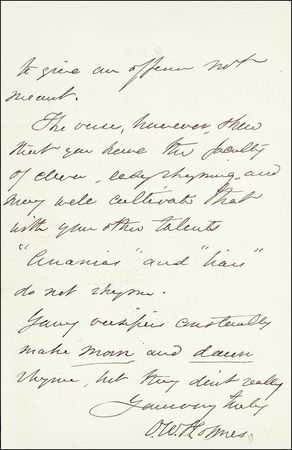 to give an offence not
meant.
The verses, however, show
that you have the faculty
of clever, easy rhyming, and
may well cultivate that
with your other talents
"Ananias" and "liars"
do not rhyme.
Young versifiers constantly
make morn and dawn
rhyme, but they don't really
Yours very truly
O. W. Holmes.